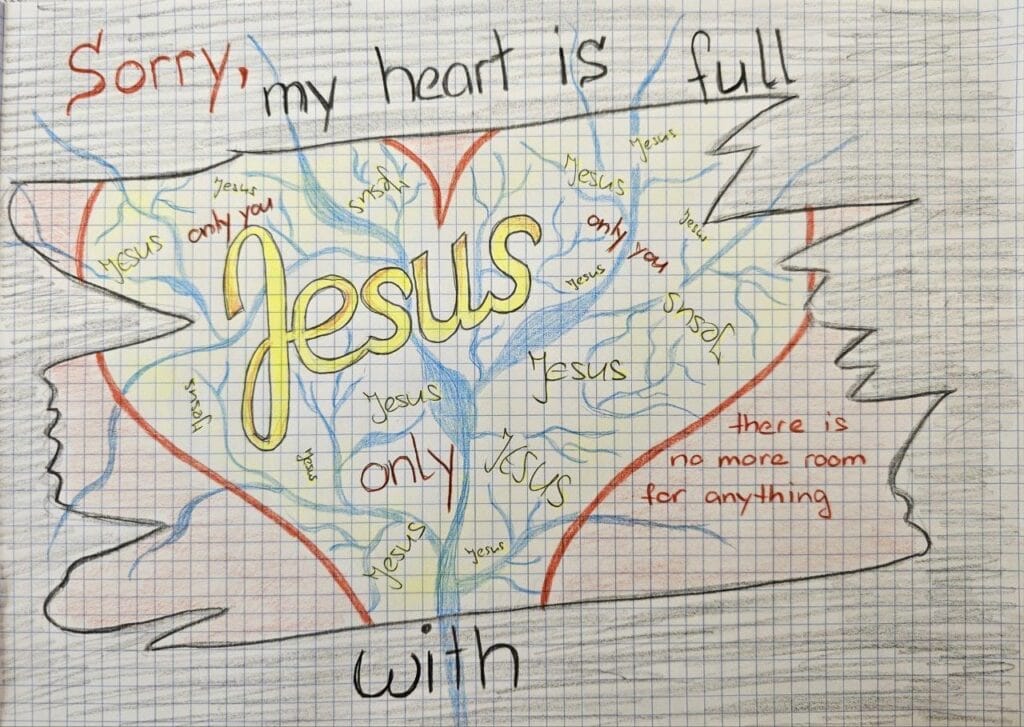 Sorry, my heart is full
Jesus
Jesus
Jesus
Jesus
only you
Jesus
Jesus
only you
Jesus
Jesus
Jesus
Jesus
Jesus
Jesus
Jesus
only
Jesus
Jesus
there is
no more room
for anything
Jesus
Jesus
with